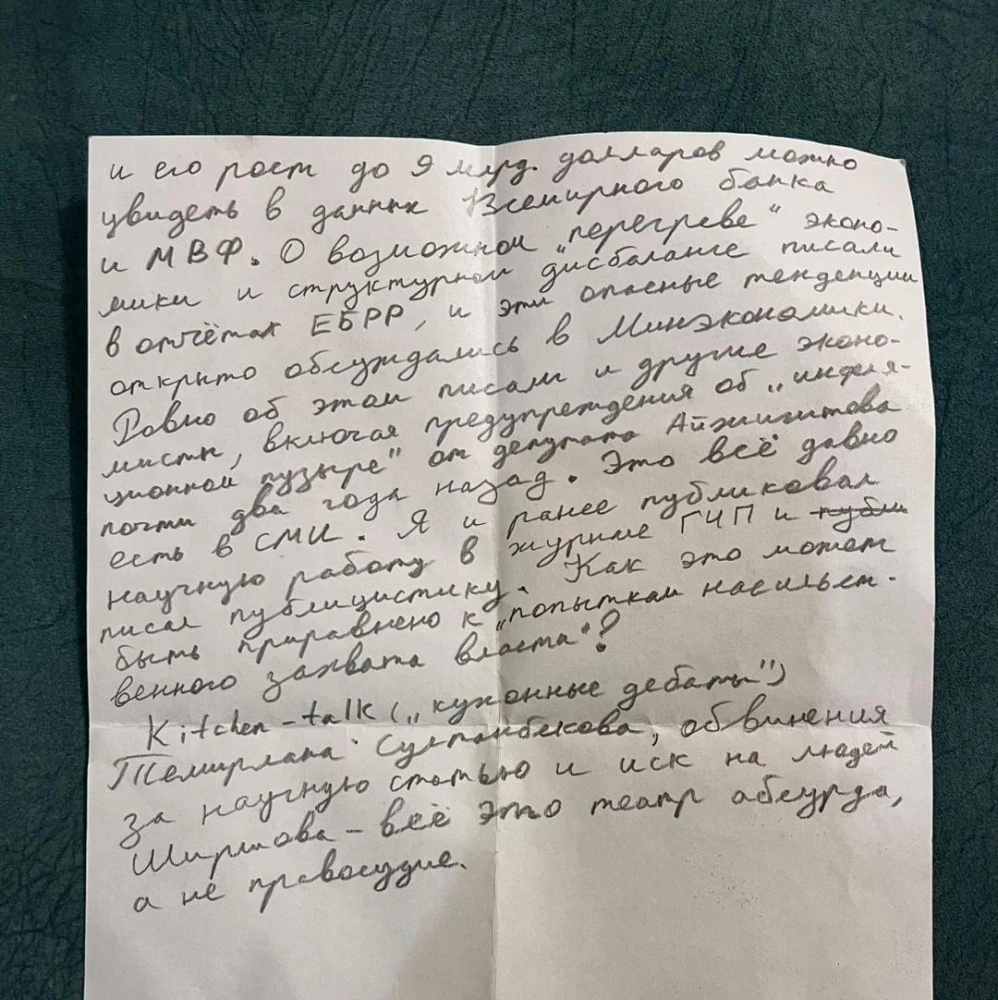 и его рост до 9 млрд. долларов можно
увидеть в данных Всемирного банка
и МВФ. О возможном „перегреве“ эконо-
мики и структурном дисбалансе писали
в отчётах ЕБРР, и эти опасные тенденции
открыто обсуждались в Минэкономики.
Ровно об этом писали и другие эконо-
мисты, включая предупреждения об „инфля-
ционном пузыре“ от депутата Айжигитова
почти два года назад. Это всё давно
есть в СМИ. Я и ранее публиковал
научную работу в журнале ГЧП и публи
писал публицистику. Как это может
быть приравнено к „попыткам насильст-
венного захвата власти“?
Kitchen-talk („кухонные дебаты“)
Темирлана Султанбекова, обвинения
за научную статью и иск на людей
Ширшова – всё это театр абсурда,
а не правосудие.